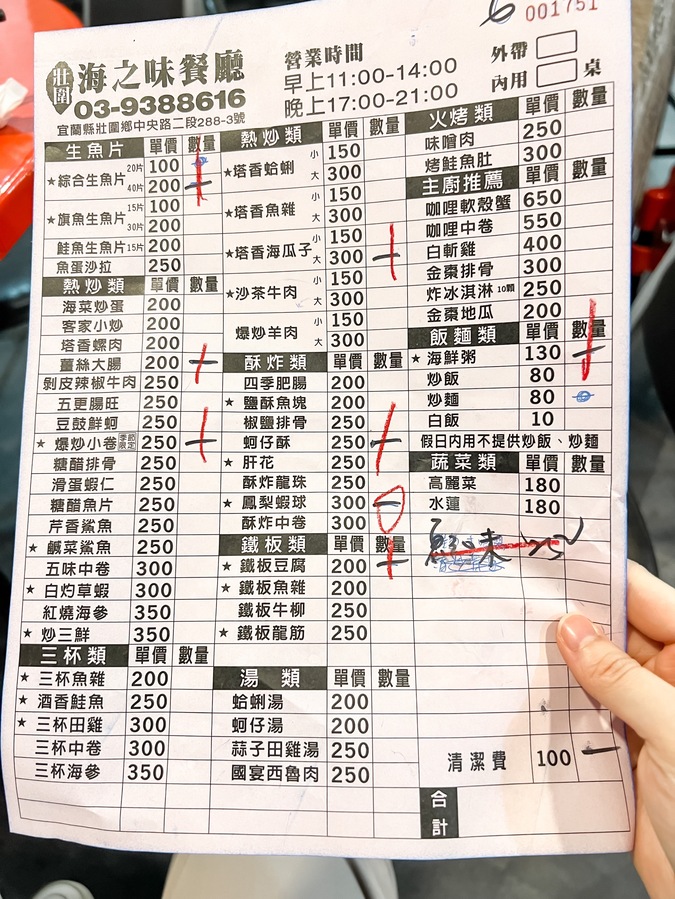 6 001751
壯圍 海之味餐廳
03-9388616
宜蘭縣壯圍鄉中央路二段288-3號
營業時間
早上11:00-14:00
晚上17:00-21:00
外帶
內用 桌
生魚片 單價 數量
★綜合生魚片 20片 100
40片 200 一
★旗魚生魚片 15片 100
30片 200
鮭魚生魚片 15片 200
魚蛋沙拉 250
熱炒類 單價 數量
海菜炒蛋 200
客家小炒 200
塔香螺肉 200
薑絲大腸 200 一
剝皮辣椒牛肉 250
五更腸旺 250
豆鼓鮮蚵 250
★ 爆炒小卷 季節限定 250 一
糖醋排骨 250
滑蛋蝦仁 250
糖醋魚片 250
芹香鯊魚 250
★ 鹹菜鯊魚 250
五味中卷 300
★ 白灼草蝦 300
紅燒海參 350
★ 炒三鮮 350
三杯類 單價 數量
★ 三杯魚雜 200
★ 酒香鮭魚 250
★ 三杯田雞 300
三杯中卷 300
三杯海參 350
熱炒類 單價 數量
★塔香蛤蜊 小 150
大 300
★塔香魚雜 小 150
大 300
★塔香海瓜子 小 150
大 300 一
★沙茶牛肉 小 150
大 300
爆炒羊肉 小 150
大 300
酥炸類 單價 數量
四季肥腸 200
★ 鹽酥魚塊 200
椒鹽排骨 250
蚵仔酥 250 一
★ 肝花 250
酥炸龍珠 250
★ 鳳梨蝦球 300 一
酥炸中卷 300
鐵板類 單價 數量
★ 鐵板豆腐 200 一
★ 鐵板魚雜 200
鐵板牛柳 250
★ 鐵板龍筋 250
湯類 單價 數量
蛤蜊湯 200
蚵仔湯 200
蒜子田雞湯 250
國宴西魯肉 250
火烤類 單價 數量
味噌肉 250
烤鮭魚肚 300
主廚推薦 單價 數量
咖哩軟殼蟹 650
咖哩中卷 550
白斬雞 400
金棗排骨 300
炸冰淇淋 10顆 250
金棗地瓜 200
飯麵類 單價 數量
★ 海鮮粥 130 一
炒飯 80
炒麵 80
白飯 10
假日內用不提供炒飯、炒麵
蔬菜類 單價 數量
高麗菜 180
水蓮 180
清潔費 100 一
合計